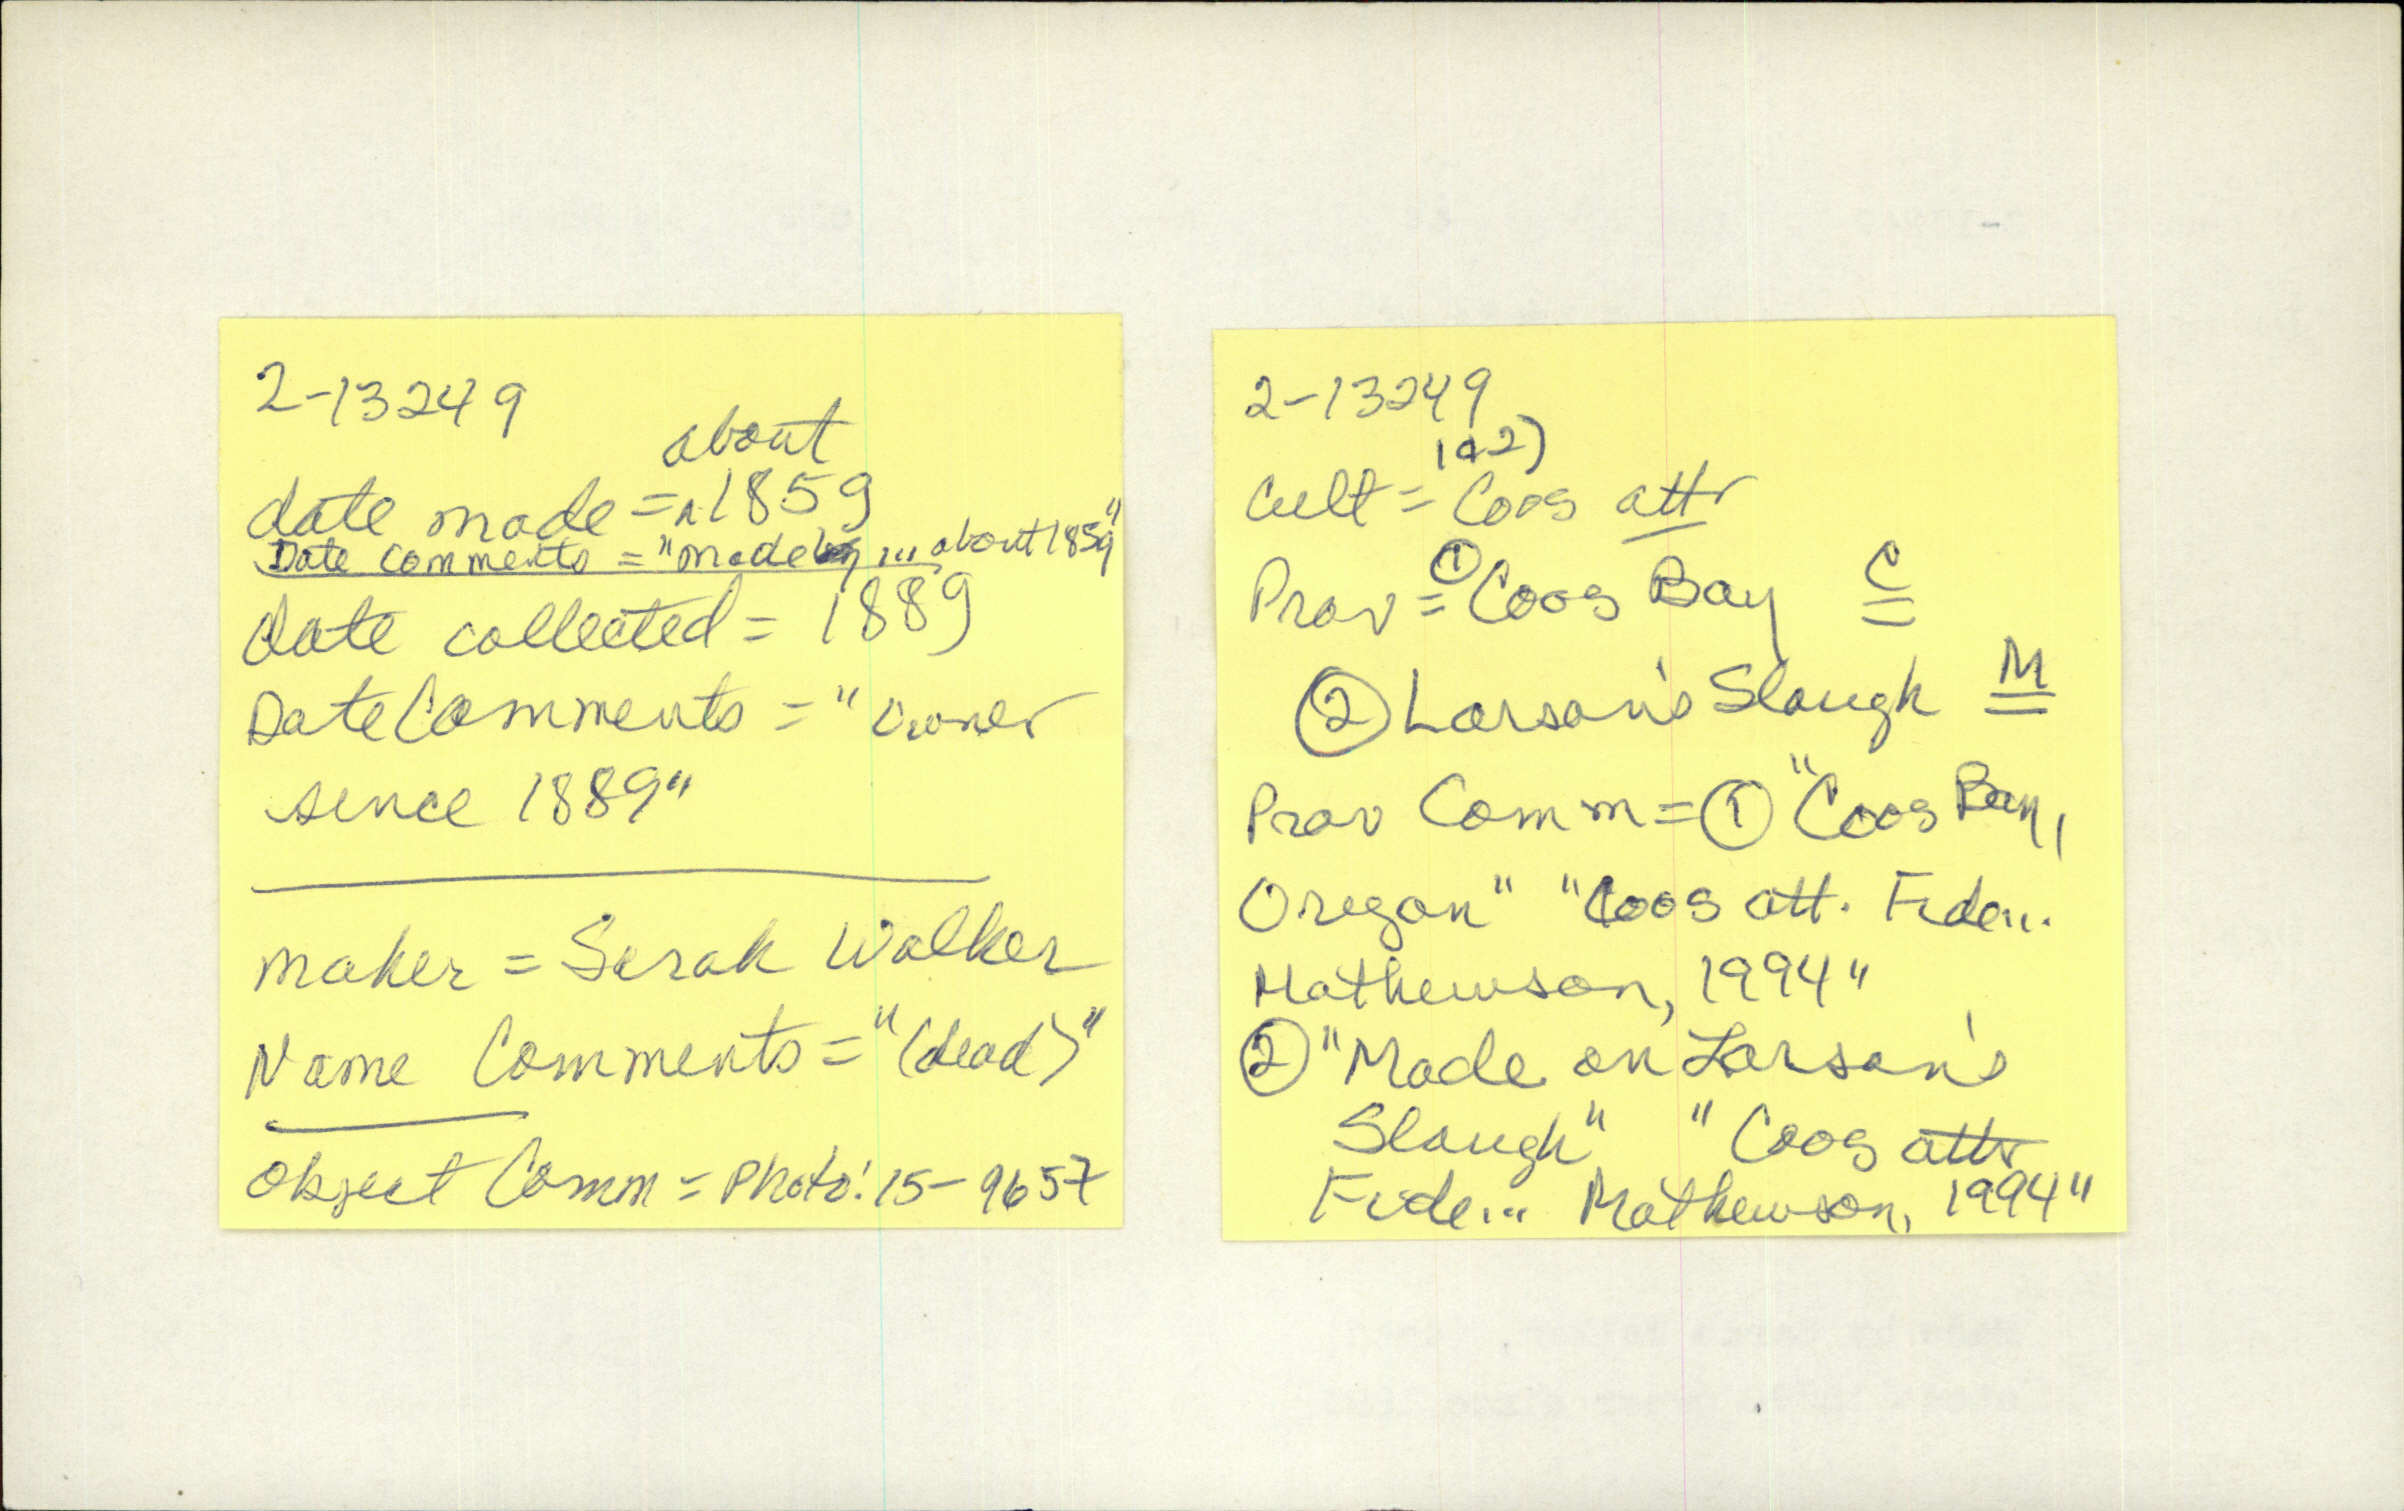 2-13249
about
date made = ^1859
Date Comments = "made by ... about 1859"
date collected = 1889
Date Comments = "Owner
since 1889"
maker = Sarah Walker
Name Comments = "(dead)"
Object Comm = Photo: 15-9657
2-13249
1+2)
Cult = Coos attr
Prov = ① Coos Bay C
② Larson's Slough M
Prov Comm = ① "Coos Bay,
Oregon" "Coos att. Fide...
Mathewson, 1994"
② "Made on Larson's
Slough" "Coos attr
Fide... Mathewson, 1994"